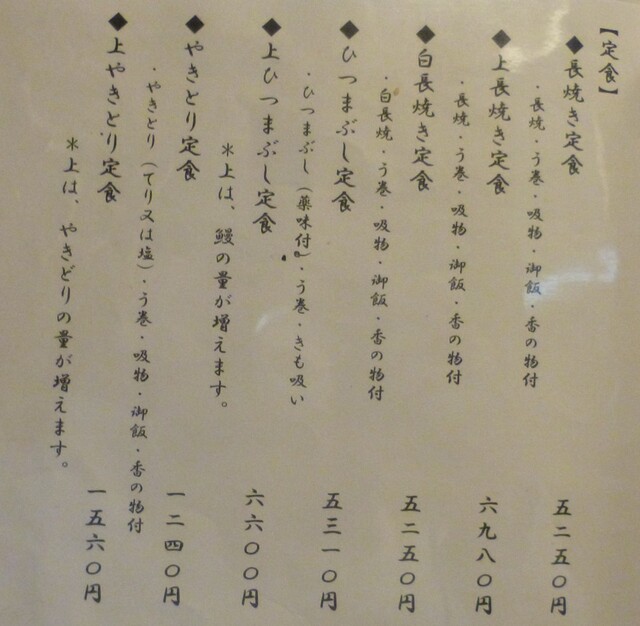 【定食】
◆長焼き定食 五二五〇円
・長焼・う巻・吸物・御飯・香の物付
◆上長焼き定食 六九八〇円
・長焼・う巻・吸物・御飯・香の物付
◆白長焼き定食 五二五〇円
・白長焼・う巻・吸物・御飯・香の物付
◆ひつまぶし定食 五三一〇円
・ひつまぶし(薬味付)・う巻・きも吸い
◆上ひつまぶし定食 六六〇〇円
＊上は、鰻の量が増えます。
◆やきどり定食 一二四〇円
・やきどり(てり又は塩)・う巻・吸物・御飯・香の物付
◆上やきどり定食 一五六〇円
＊上は、やきどりの量が増えます。